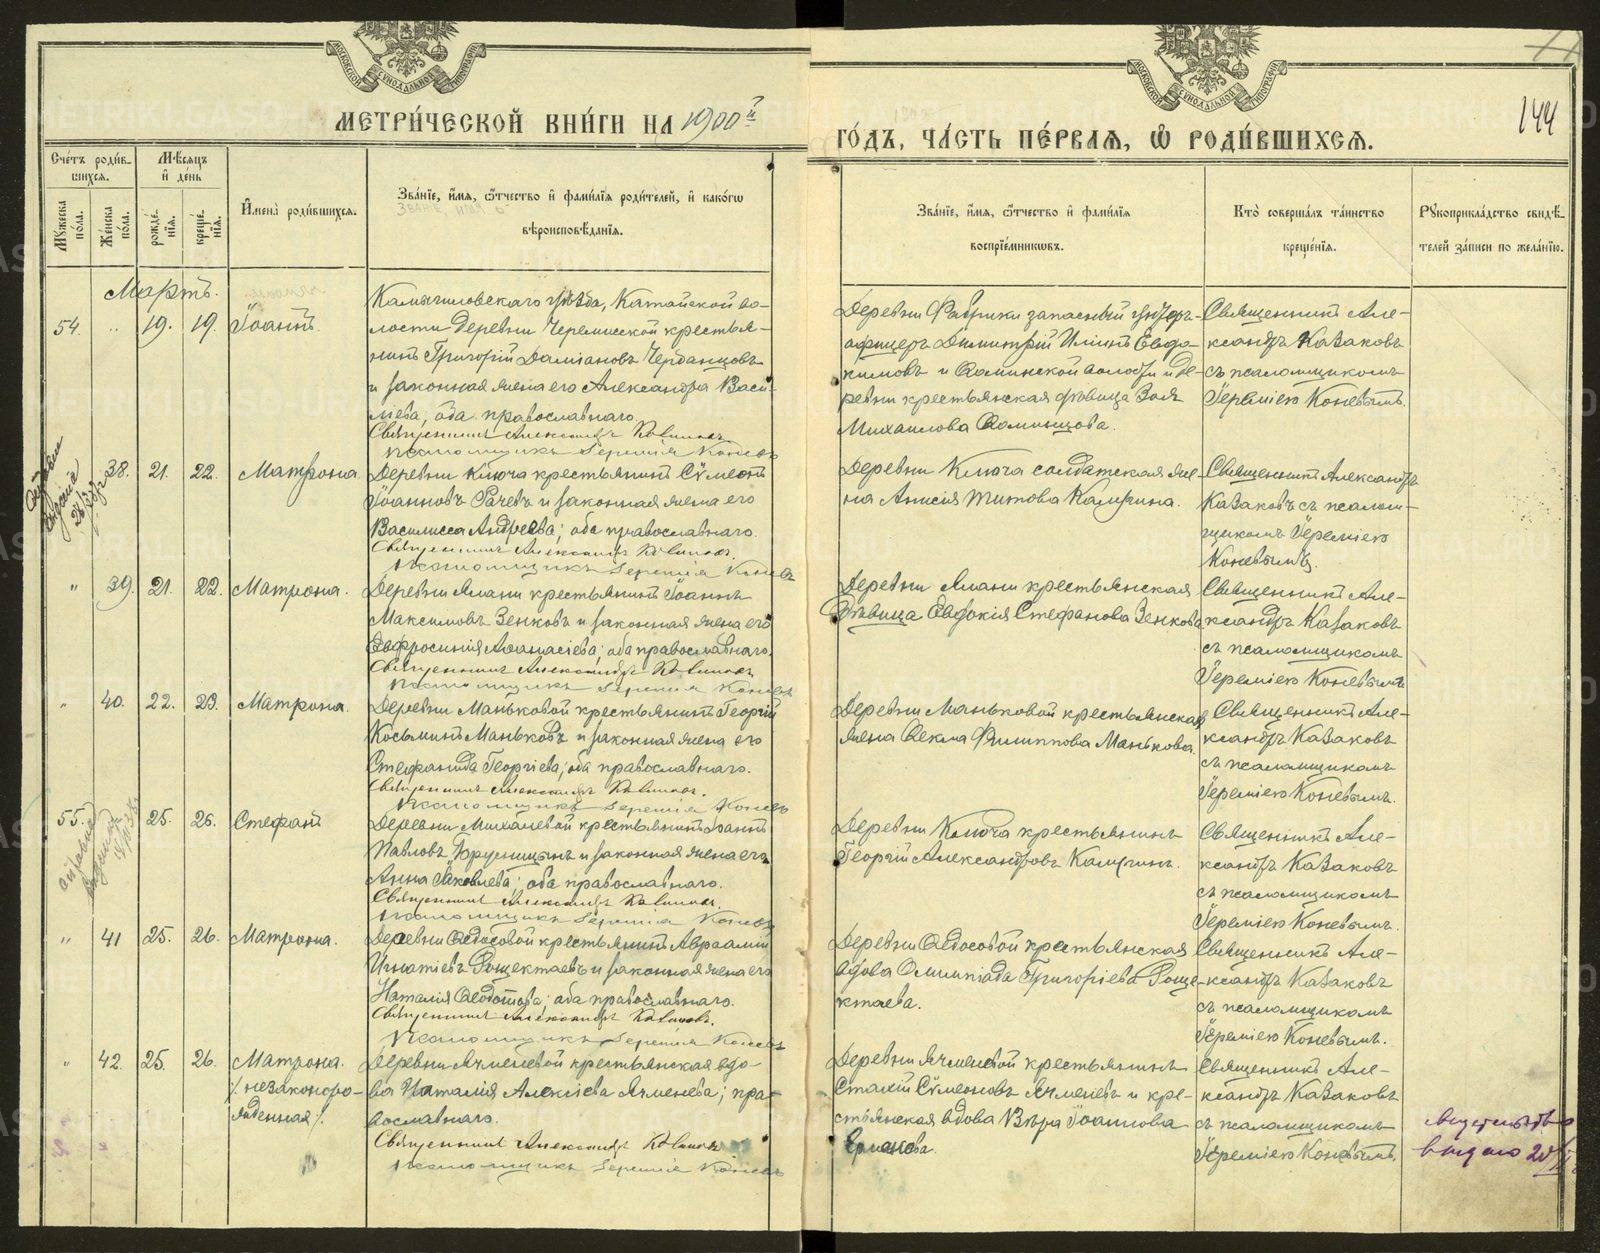 МЕТРИ́ЧЕСКОЙ КНИ́ГИ НА 1900й
ГО́ДЪ, ЧА́СТЬ ПЕ́РВАЯ, Ѡ РОДИ́ВШИХСЯ.
144
МОСКОВСКОЙ СУНОДАЛЬНОЙ ТИПОГРАФІИ
МОСКОВСКОЙ СУНОДАЛЬНОЙ ТИПОГРАФІИ
Сче́тъ роди́в-
шихся.
Мужеска по́ла.
Же́нска по́ла.
Мѣ́сяцъ
и де́нь
рожде́нїя.
креще́нїя.
Имена̀ роди́вшихся.
Зва́нїе, и́мя, ѻ́тчество и фами́лїя роди́телей, и како́гѡ
вѣроисповѣ́данїя.
Зва́нїе, и́мя, ѻ́тчество и фами́лїя
воспрїе́мникѡвъ.
Кто̀ соверша́лъ та́инство
креще́нїя.
Рукоприкла́дство свидѣ́-
телей за́писи по жела́нїю.
Мартъ.
54. " 19. 19. Іоаннъ.
Камышловскаго уѣзда, Катайской во-
лости деревни Черемисской крестья-
нинъ Григорій Даміановъ Чербанцовъ
и законная жена его Александра Васи-
ліева, оба православнаго.
Священникъ Александръ Казаковъ
Псаломщикъ Іеремія Коневъ
запасный унтеръ-
офицеръ Димитрій Ильинъ Евдо-
кимовъ и
ревни крестьянская дѣвица Зоя
Михаилова
Священникъ Але-
ксандръ Казаковъ
съ псаломщикомъ
Іереміею Коневымъ.
38. 21. 22. Матрона.
Деревни Ключа крестьянинъ Сѵмеонъ
Іоанновъ Рачевъ и законная жена его
Василисса Андреева; оба православнаго.
Священникъ Александръ Казаковъ.
Псаломщикъ Іеремія Коневъ
Деревни Ключа солдатская же-
на Анисія Титова
Священникъ Александръ
Казаковъ съ псалом-
щикомъ Іереміею
Коневымъ.
" 39. 21. 22. Матрона.
Деревни Ялани крестьянинъ Іоаннъ
Максимовъ Зенковъ и законная жена его
Евфросинія Аѳанасіева; оба православнаго.
Священникъ Александръ Казаковъ
Псаломщикъ Іеремія Коневъ
Деревни Ялани крестьянская
дѣвица Евдокія Стефанова Зенкова
Священникъ Але-
ксандръ Казаковъ
съ псаломщикомъ
Іереміею Коневымъ
" 40. 22. 23. Матрона.
Деревни Маньковой крестьянинъ Георгій
Косьминъ Маньковъ и законная жена его
Стефанида Георгіева; оба православнаго.
Священникъ Александръ Казаковъ.
Псаломщикъ Іеремія Коневъ
Деревни Маньковой крестьянская
жена Ѳекла Филиппова Манькова.
Священникъ Але-
ксандръ Казаковъ
съ псаломщикомъ
Іереміею Коневымъ.
55. 25. 26. Стефанъ
Деревни Михалевой крестьянинъ Іоаннъ
Павловъ Брусницынъ и законная жена его
Анна Іаковлева; оба православнаго.
Священникъ Александръ Казаковъ.
Псаломщикъ Іеремія Коневъ
Деревни Ключа крестьянинъ
Георгій Александровъ
Священникъ Але-
ксандръ Казаковъ
съ псаломщикомъ
Іереміею Коневымъ.
" 41 25. 26. Матрона.
Деревни Ѳедосовой крестьянинъ Авраамій
Игнатіевъ Рощектаевъ и законная жена его
Наталія Ѳеодотова; оба православнаго.
Священникъ Александръ Казаковъ.
Псаломщикъ Іеремія Коневъ
Деревни Ѳедосовой крестьянская
вдова Олимпіада Григоріева Роще-
ктаева.
Священникъ Але-
ксандръ Казаковъ
съ псаломщикомъ
Іереміею Коневымъ.
" 42. 25. 26. Матрона.
/незаконоро-
жденная/.
Деревни Ячменевой крестьянская вдо-
ва Наталія Алексіева Ячменева; пра-
вославнаго.
Священникъ Александръ Казаковъ
Псаломщикъ Іеремія Коневъ
Деревни Ячменевой крестьянинъ
Стахій Сѵмеоновъ Ячменевъ и кре-
стьянская вдова Вѣра Іоаннова
Ермакова.
Священникъ Але-
ксандръ Казаковъ
съ псаломщикомъ
Іереміею Коневымъ.